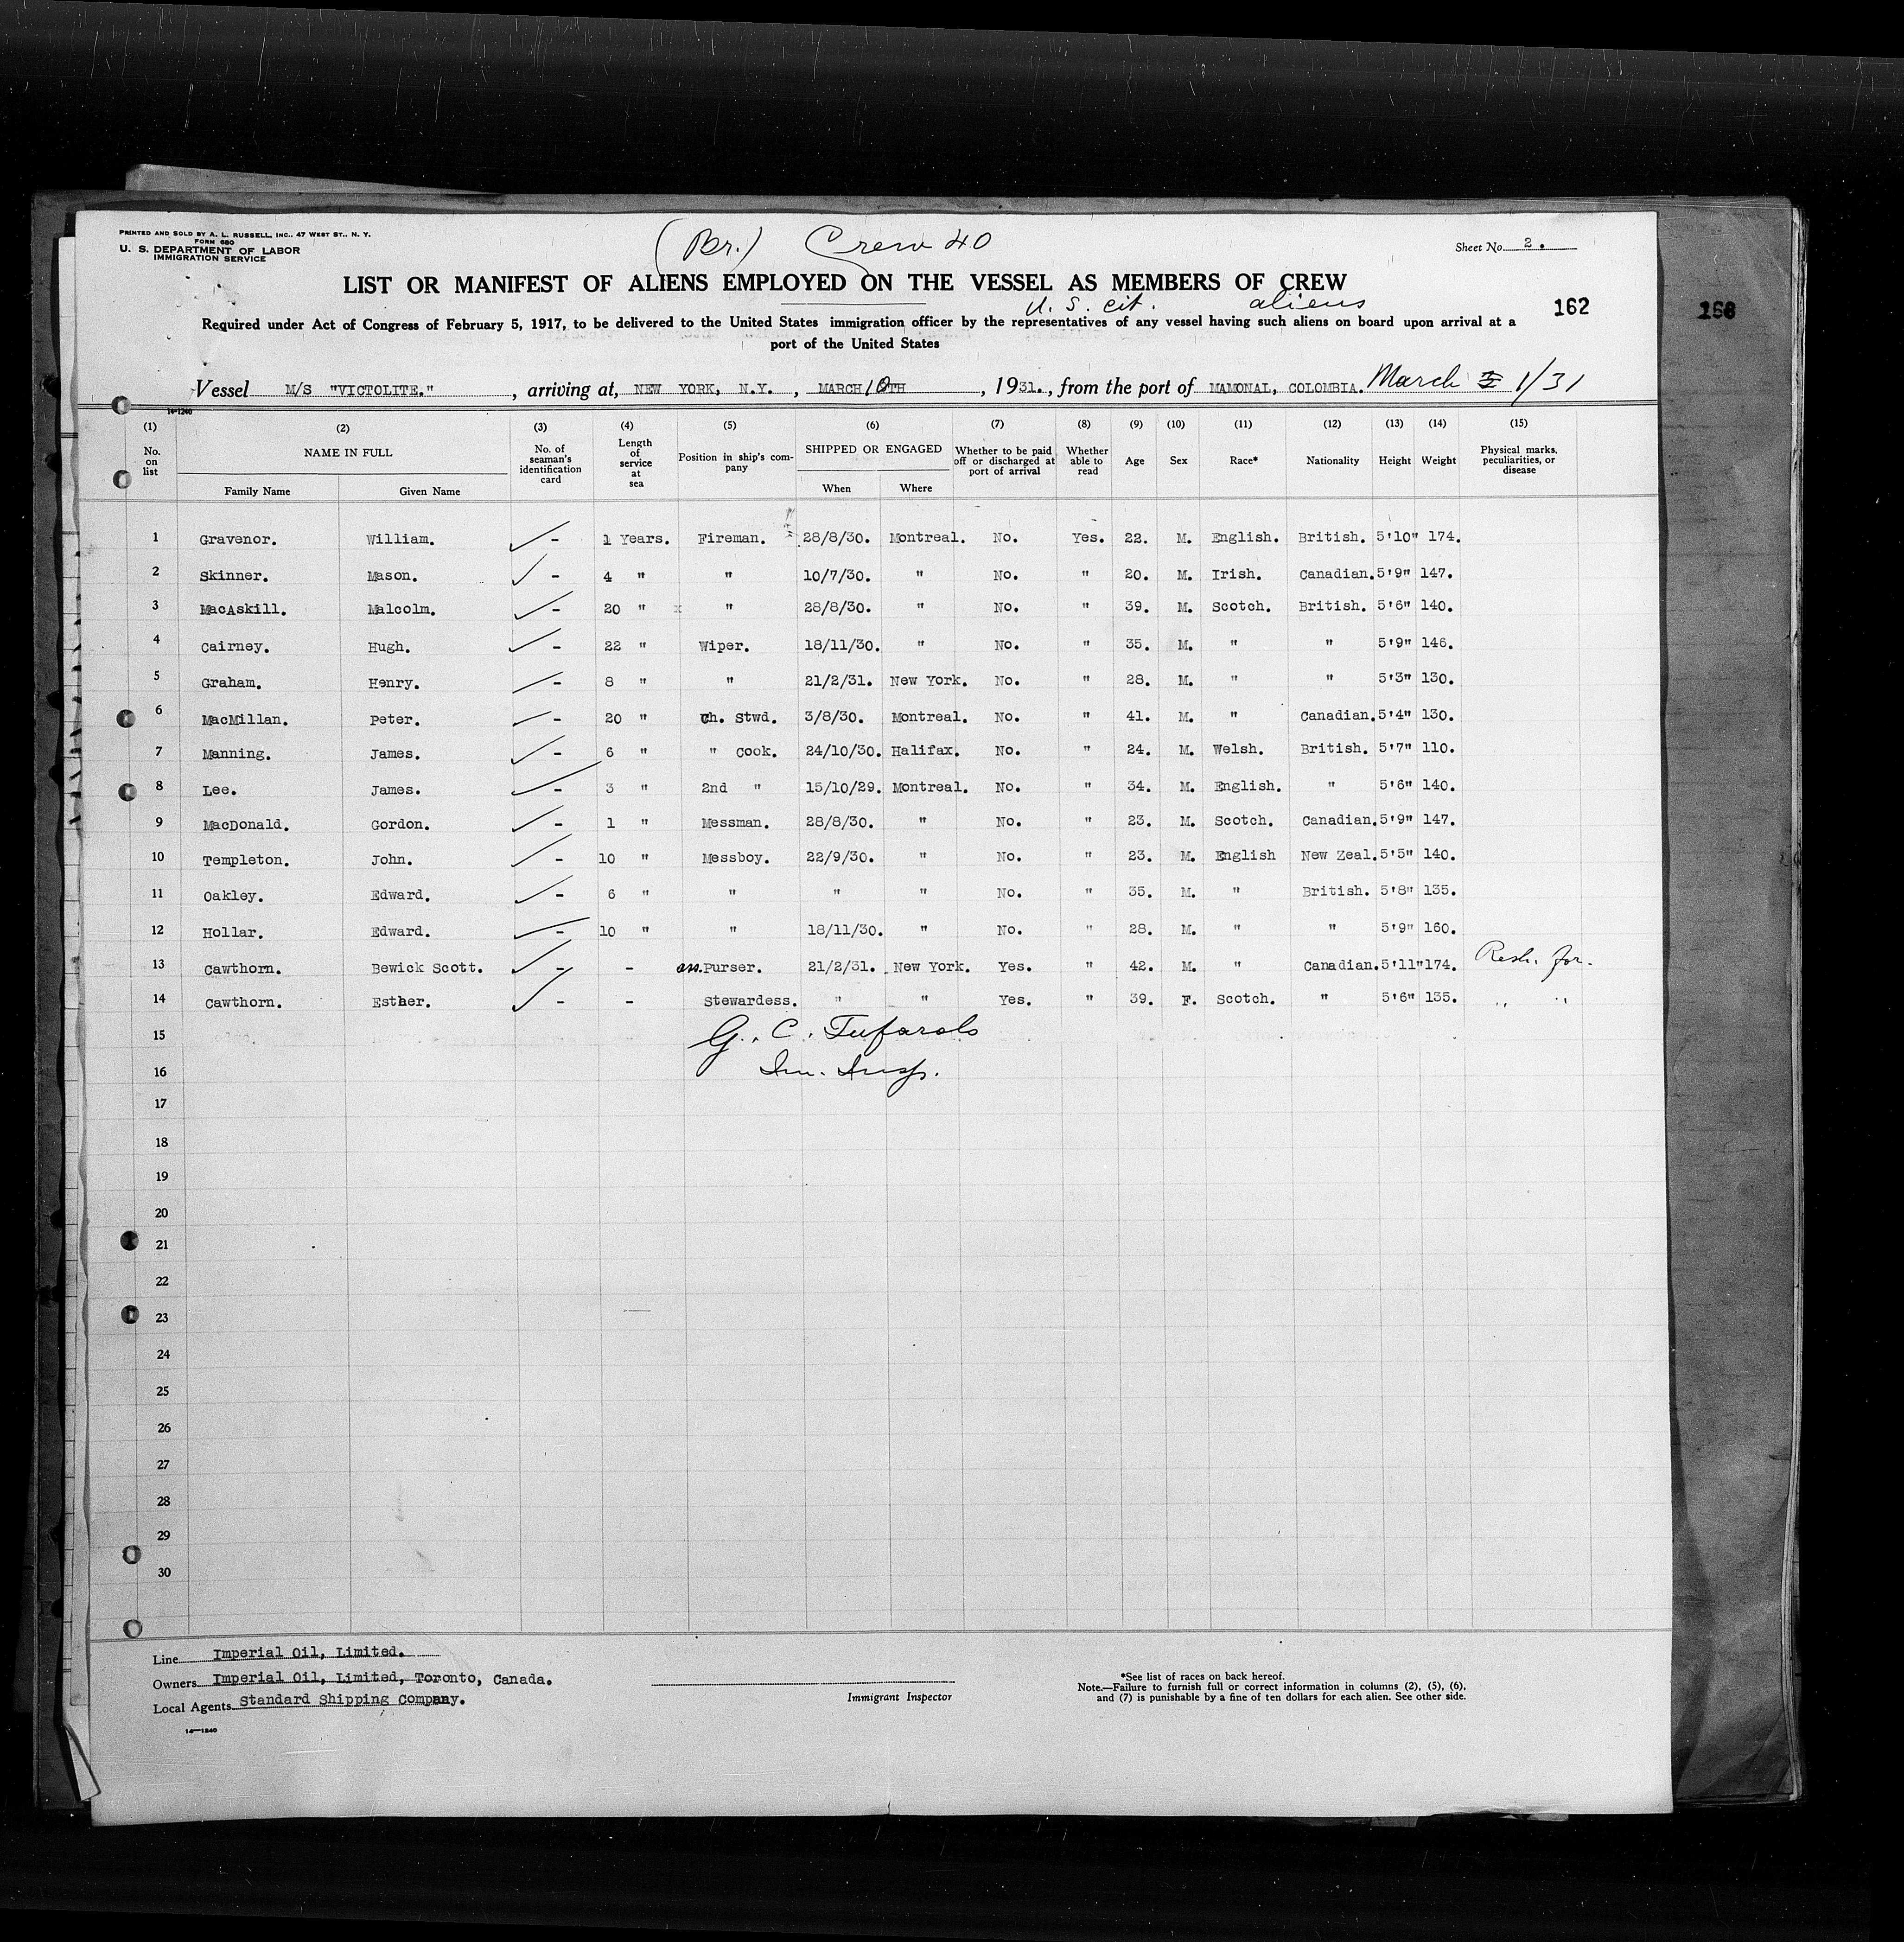 PRINTED AND SOLD BY A. L. RUSSELL, INC., 47 WEST ST., N. Y.
FORM 680
U. S. DEPARTMENT OF LABOR
IMMIGRATION SERVICE
(Br.) Crew 40
Sheet No. 2.
LIST OR MANIFEST OF ALIENS EMPLOYED ON THE VESSEL AS MEMBERS OF CREW
U. S. cit. aliens
162
168
Required under Act of Congress of February 5, 1917, to be delivered to the United States immigration officer by the representatives of any vessel having such aliens on board upon arrival at a
port of the United States
Vessel M/S "VICTOLITE." , arriving at, NEW YORK, N.Y. , MARCH 10TH , 1931., from the port of MAMONAL, COLOMBIA. March 1/31
14-1240
(1) (2) (3) (4) (5) (6) (7) (8) (9) (10) (11) (12) (13) (14) (15)
No. on list NAME IN FULL Family Name Given Name No. of seaman's identification card Length of service at sea Position in ship's company SHIPPED OR ENGAGED When Where Whether to be paid off or discharged at port of arrival Whether able to read Age Sex Race* Nationality Height Weight Physical marks, peculiarities, or disease
1 Gravenor. William. - 1 Years. Fireman. 28/8/30. Montreal. No. Yes. 22. M. English. British. 5'10" 174.
2 Skinner. Mason. - 4 " " 10/7/30. " No. " 20. M. Irish. Canadian. 5'9" 147.
3 MacAskill. Malcolm. - 20 " x " 28/8/30. " No. " 39. M. Scotch. British. 5'6" 140.
4 Cairney. Hugh. - 22 " Wiper. 18/11/30. " No. " 35. M. " " 5'9" 146.
5 Graham. Henry. - 8 " " 21/2/31. New York. No. " 28. M. " " 5'3" 130.
6 MacMillan. Peter. - 20 " Ch. Stwd. 3/8/30. Montreal. No. " 41. M. " Canadian. 5'4" 130.
7 Manning. James. - 6 " " Cook. 24/10/30. Halifax. No. " 24. M. Welsh. British. 5'7" 110.
8 Lee. James. - 3 " 2nd " 15/10/29. Montreal. No. " 34. M. English. " 5'6" 140.
9 MacDonald. Gordon. - 1 " Messman. 28/8/30. " No. " 23. M. Scotch. Canadian. 5'9" 147.
10 Templeton. John. - 10 " Messboy. 22/9/30. " No. " 23. M. English New Zeal. 5'5" 140.
11 Oakley. Edward. - 6 " " " " No. " 35. M. " British. 5'8" 135.
12 Hollar. Edward. - 10 " " 18/11/30. " No. " 28. M. " " 5'9" 160.
13 Cawthorn. Bewick Scott. - - ass. Purser. 21/2/31. New York. Yes. " 42. M. " Canadian. 5'11" 174. Resh. for.
14 Cawthorn. Esther. - - Stewardess. " " Yes. " 39. F. Scotch. " 5'6" 135. " "
15 G. C. Tufarolo
16 Im. Insp.
17
18
19
20
21
22
23
24
25
26
27
28
29
30
Line Imperial Oil, Limited.
Owners Imperial Oil, Limited, Toronto, Canada.
Local Agents Standard Shipping Company.
14-1240
Immigrant Inspector
*See list of races on back hereof.
Note.—Failure to furnish full or correct information in columns (2), (5), (6),
and (7) is punishable by a fine of ten dollars for each alien. See other side.